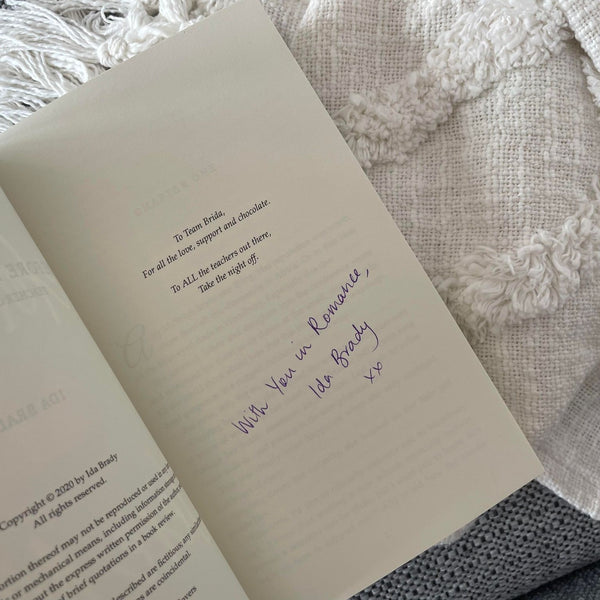 To Team Brida,
For all the love, support and chocolate.
To ALL the teachers out there,
Take the night off.
With You in Romance,
Ida Brady
xx
Copyright © 2020 by Ida Brady
All rights reserved.
ortion thereof may not be reproduced or used in any
s or mechanical means, including information storage
out the express written permission of the author
of brief quotations in a book review.
described are fictitious; any
are coincidental.